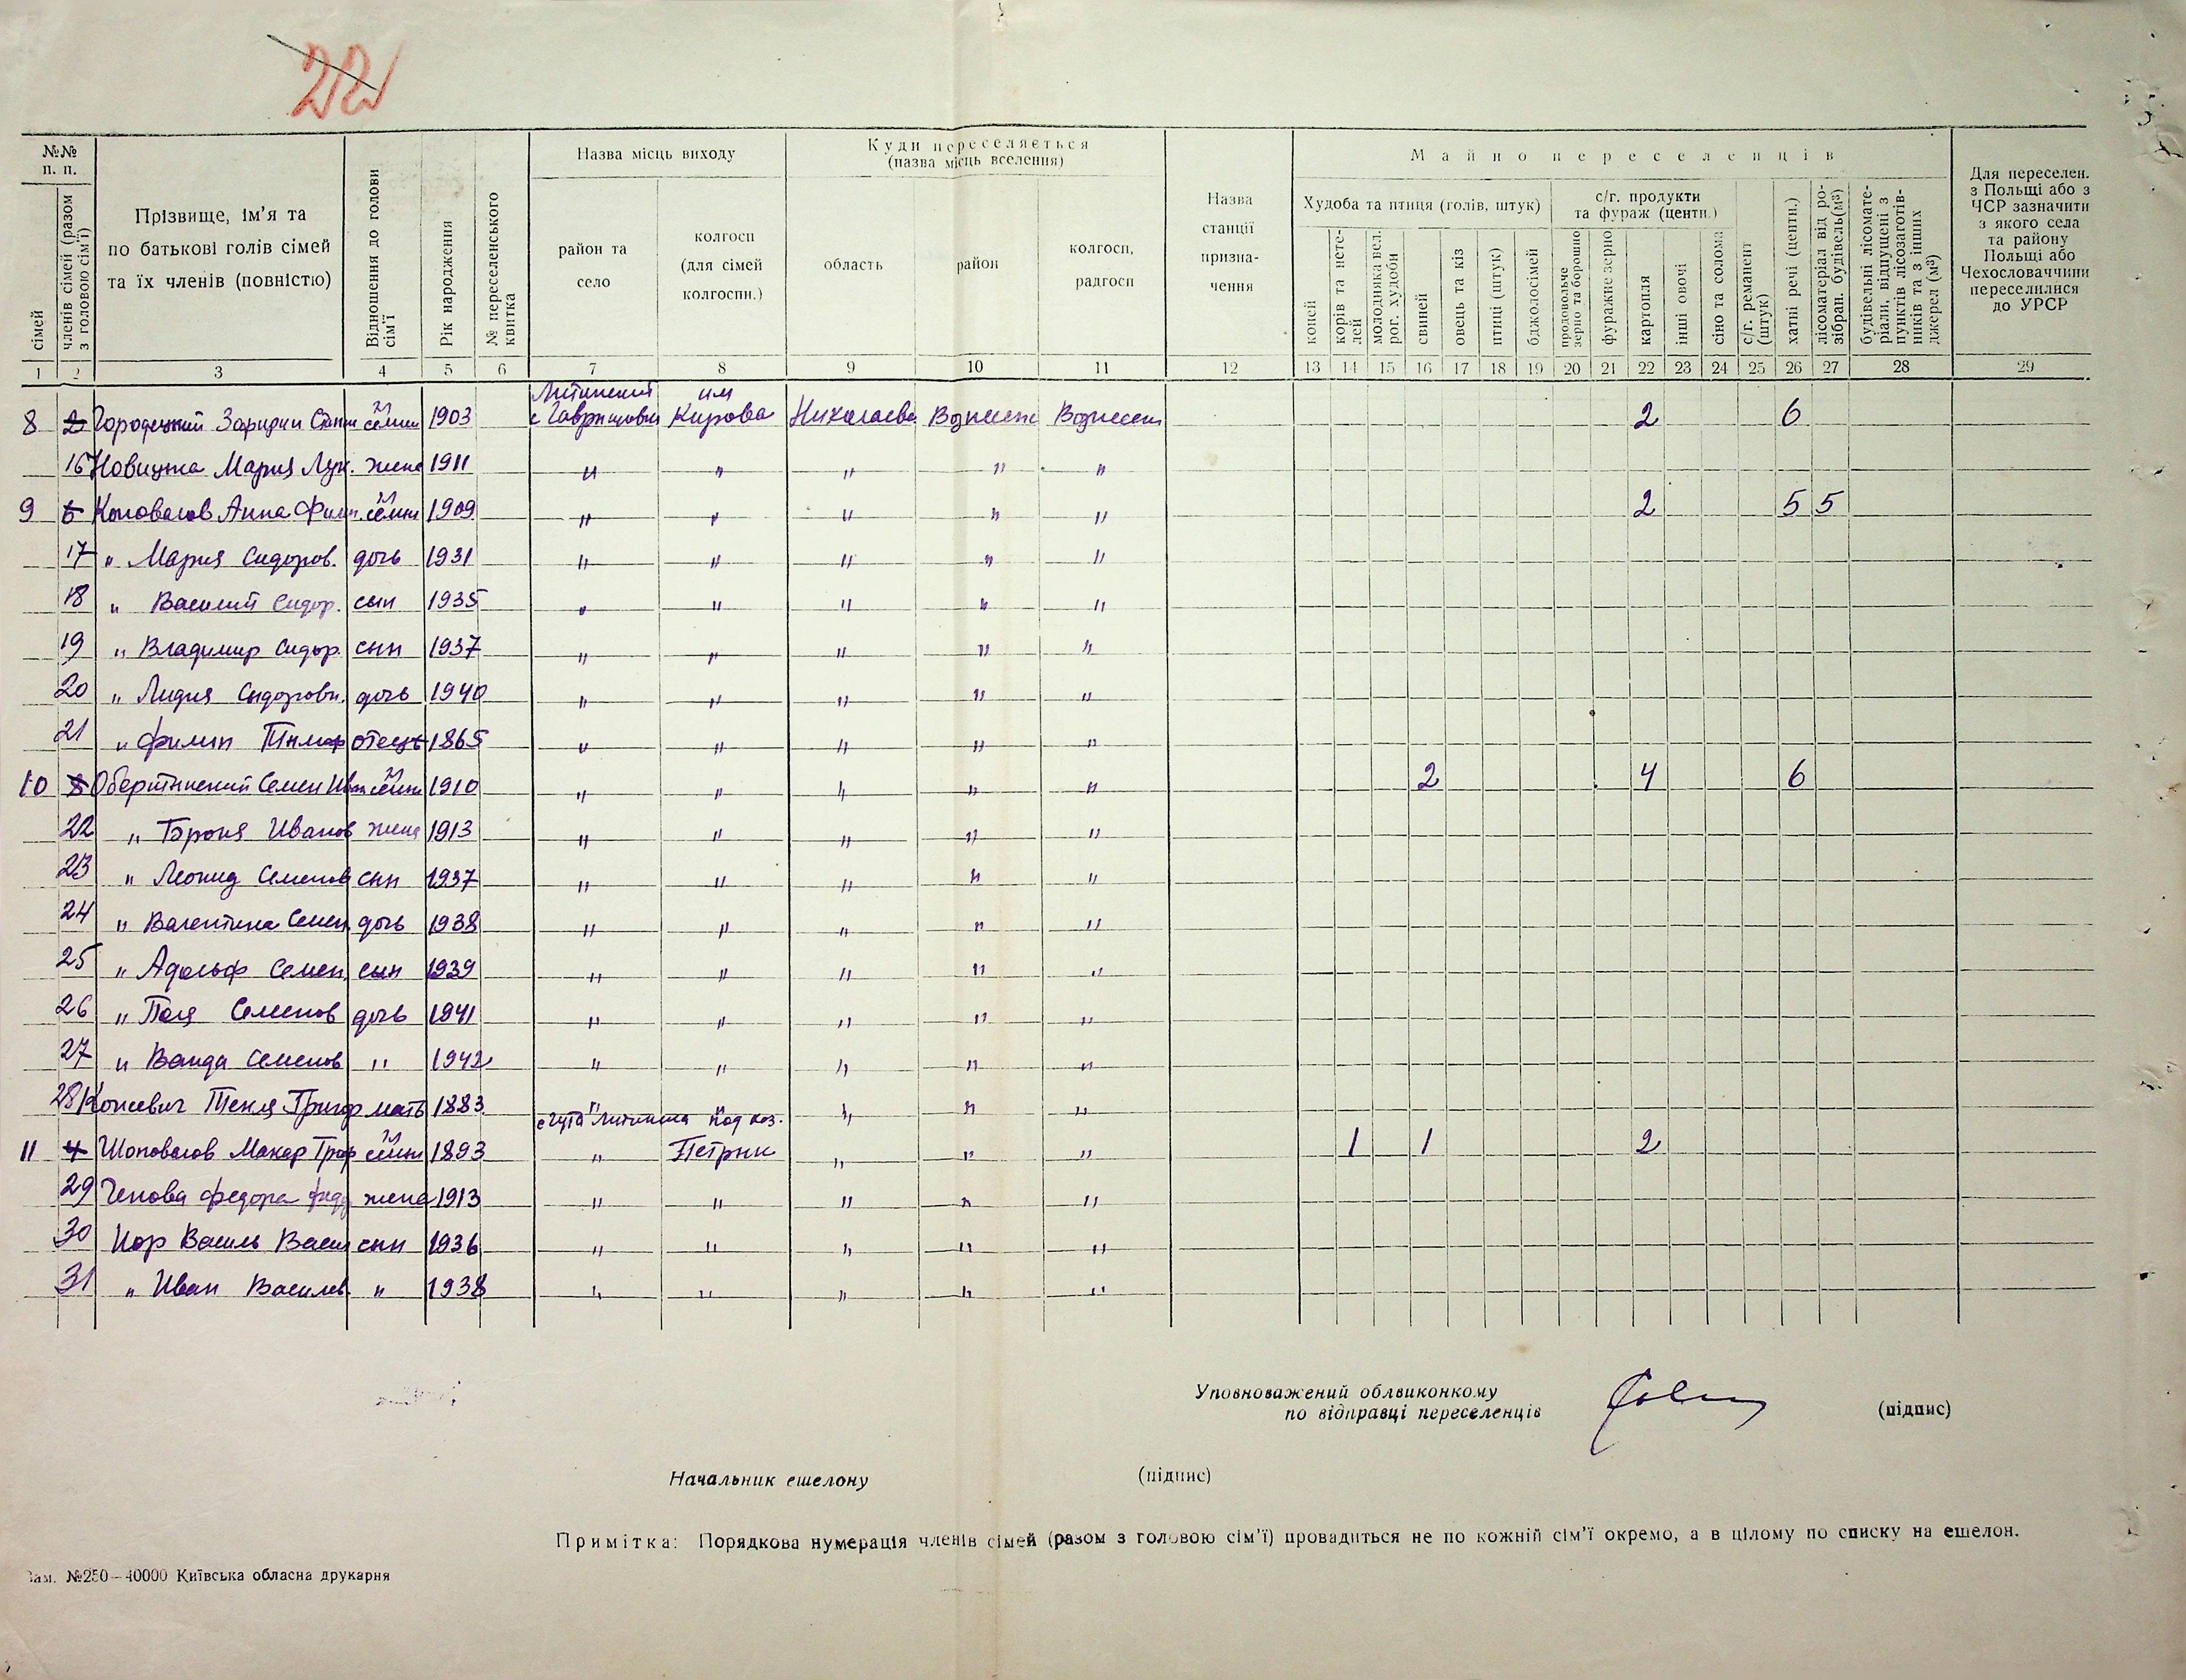 22
№№ п. п.
сімей
членів сімей (разом з головою сім'ї)
Прізвище, ім'я та
по батькові голів сімей
та їх членів (повністю)
Відношення до голови сім'ї
Рік народження
№ переселенського квитка
Назва місць виходу
район та
село
колгосп
(для сімей
колгоспн.)
Куди переселяється
(назва місць вселення)
область
район
колгосп,
радгосп
Назва
станції
призна-
чення
Майно переселенців
Худоба та птиця (голів, штук)
коней
корів та нете-
лей
молодняка вел.
рог. худоби
свиней
овець та кіз
птиці (штук)
бджолосімей
с/г. продукти
та фураж (центн.)
продовольче
зерно та борошно
фуражне зерно
картопля
інші овочі
сіно та солома
с/г. реманент
(штук)
хатні речі (центн.)
лісоматеріал від ро-
зібран. будівель(м³)
будівельні лісомате-
ріали, відпущені з
пунктів лісозаготів-
ників та з інших
джерел (м³)
Для переселен.
з Польщі або з
ЧСР зазначити
з якого села
та району
Польщі або
Чехословаччини
переселилися
до УРСР
1 2 3 4 5 6 7 8 9 10 11 12 13 14 15 16 17 18 19 20 21 22 23 24 25 26 27 28 29
Литинский им
8 2 Городецкий 1903 Кирова Николаев. Вознесен Вознесен 2 6
16 Новицка Мария Лук. жена 1911 " " " " "
9 Коновалов Анна Филип. 1909 " " " " " 2 5 5
17 " Мария Сидоров. дочь 1931 " " " " "
18 " Василий Сидор. сын 1935 " " " " "
19 " Владимир Сидор. сын 1937 " " " " "
20 " Лидия Сидоровн. дочь 1940 " " " " "
21 " Филип отець 1865 " " " " "
10 8 Обертинский Семен Иван 1910 " " " " " 2 4 6
22 " Броня Иванов жена 1913 " " " " "
23 " Леонид Семенов сын 1937 " " " " "
24 " Валентина Семен. дочь 1938 " " " " "
25 " Адольф Семен. сын 1939 " " " " "
26 " Поля Семенов дочь 1941 " " " " "
27 " Ванда Семенов " 1942 " " " " "
28 Текля Григор мать 1883 " " " " "
11 4 Шоповалов Макар Троф 1893 " Петрик " " " 1 1 2
29 Федора жена 1913 " " " " "
30 Василь Васил сын 1936 " " " " "
31 " Иван Василев. " 1938 " " " " "
Уповноважений облвиконкому
по відправці переселенців (підпис)
Начальник ешелону (підпис)
Примітка: Порядкова нумерація членів сімей (разом з головою сім'ї) провадиться не по кожній сім'ї окремо, а в цілому по списку на ешелон.
Зам. №250—40000 Київська обласна друкарня